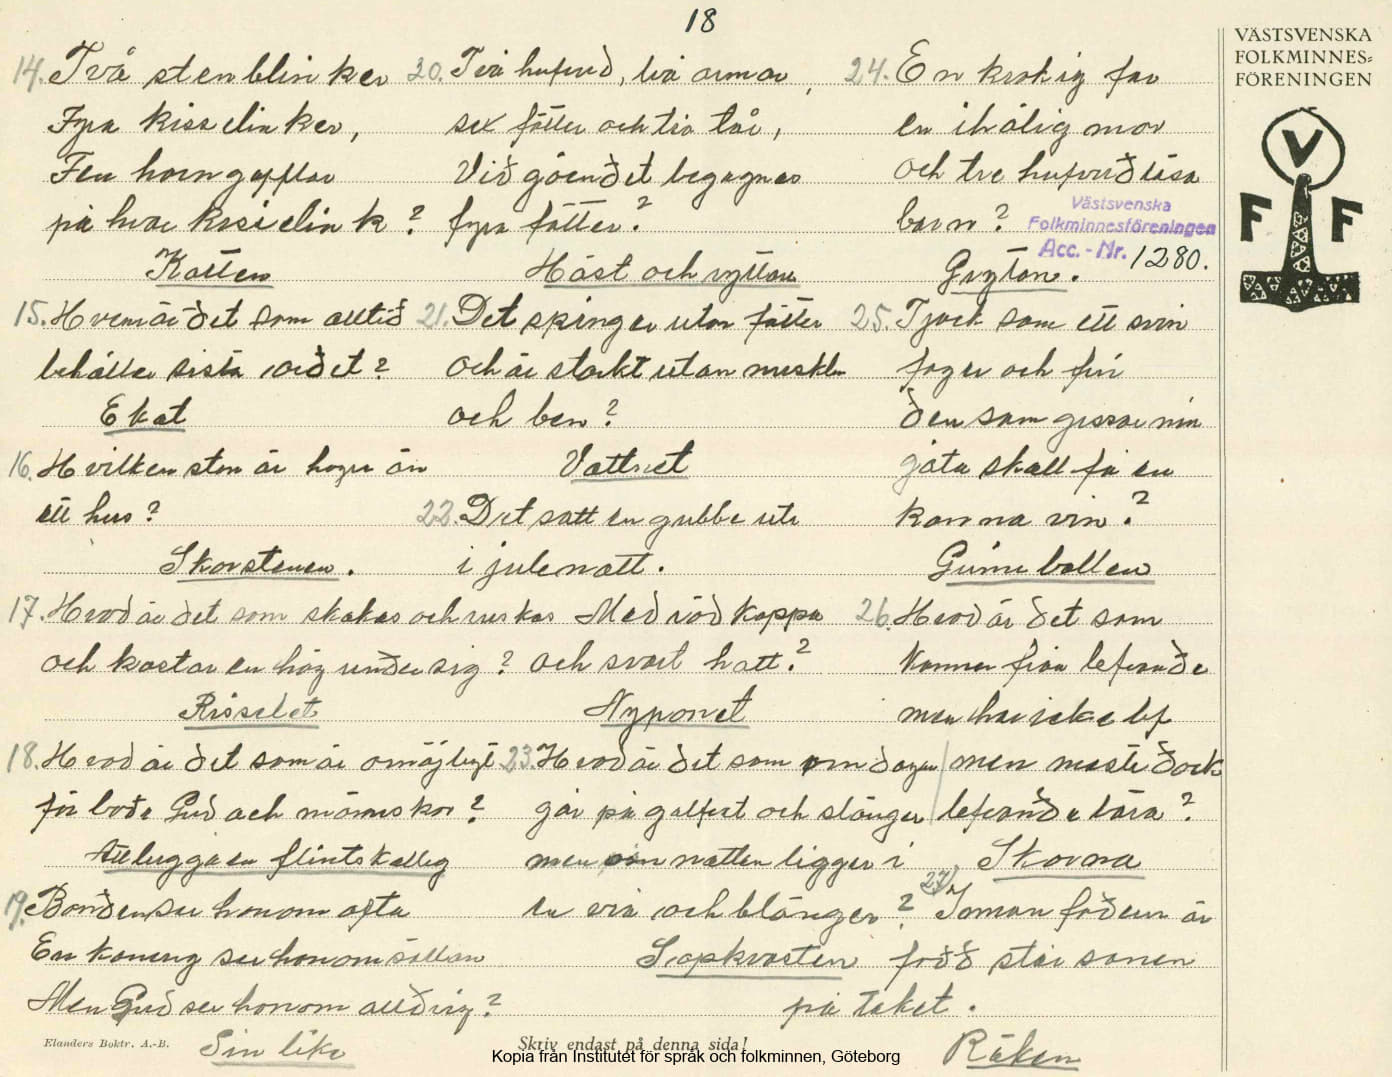 18
14. Två stenblinker
Fyra kisselinker,
Fem horngafflar
på hvar kisielink?
Katten
15. Hvem är det som alltid
behåller sista ordet?
Ekot
16. Hvilken sten är högre än
ett hus?
Skorstenen.
17. Hvad är det som skakas och ruskas
och kastar en hög under sig?
Risslet
18. Hvad är det som är omöjligt
för både Gud och människor?
Att lugga en flintskallig
19. Bonden ser honom ofta
En konung ser honom sällan
Men Gud ser honom alldrig?
Sin like
20. Två hufvud, två armar,
sex fötter och tio tår,
Vid gåendet begagnas
fyra fötter?
Häst och ryttare
21. Det springer utan fötter
och är starkt utan muskler
och ben?
Vattnet
22. Det satt en gubbe ute
i julenatt.
Med röd kappa
och svart hatt?
Nyponet
23. Hvad är det som om dagen
går på golfvet och slänger
men om natten ligger i
en vrå och blänger?
Sopkvasten
24. En krokig far
en ihålig mor
och tre hufvudlösa
barn?
Grytan.
25. Tjock som ett svin
fager och fin
den som gissar min
gåta skall få en
kanna vin?
26. Hvad är det som
kommer från lefvande
men har icke lif
men måste dock
lefvande bära?
Skorna
27) Innan fadern är
född står sonen
på taket.
Röken
VÄSTSVENSKA
FOLKMINNES=
FÖRENINGEN
V
F F
Västsvenska
Folkminnesföreningen
Acc.-Nr. 1280.
Elanders Boktr. A.-B.
Skriv endast på denna sida!
Kopia från Institutet för språk och folkminnen, Göteborg